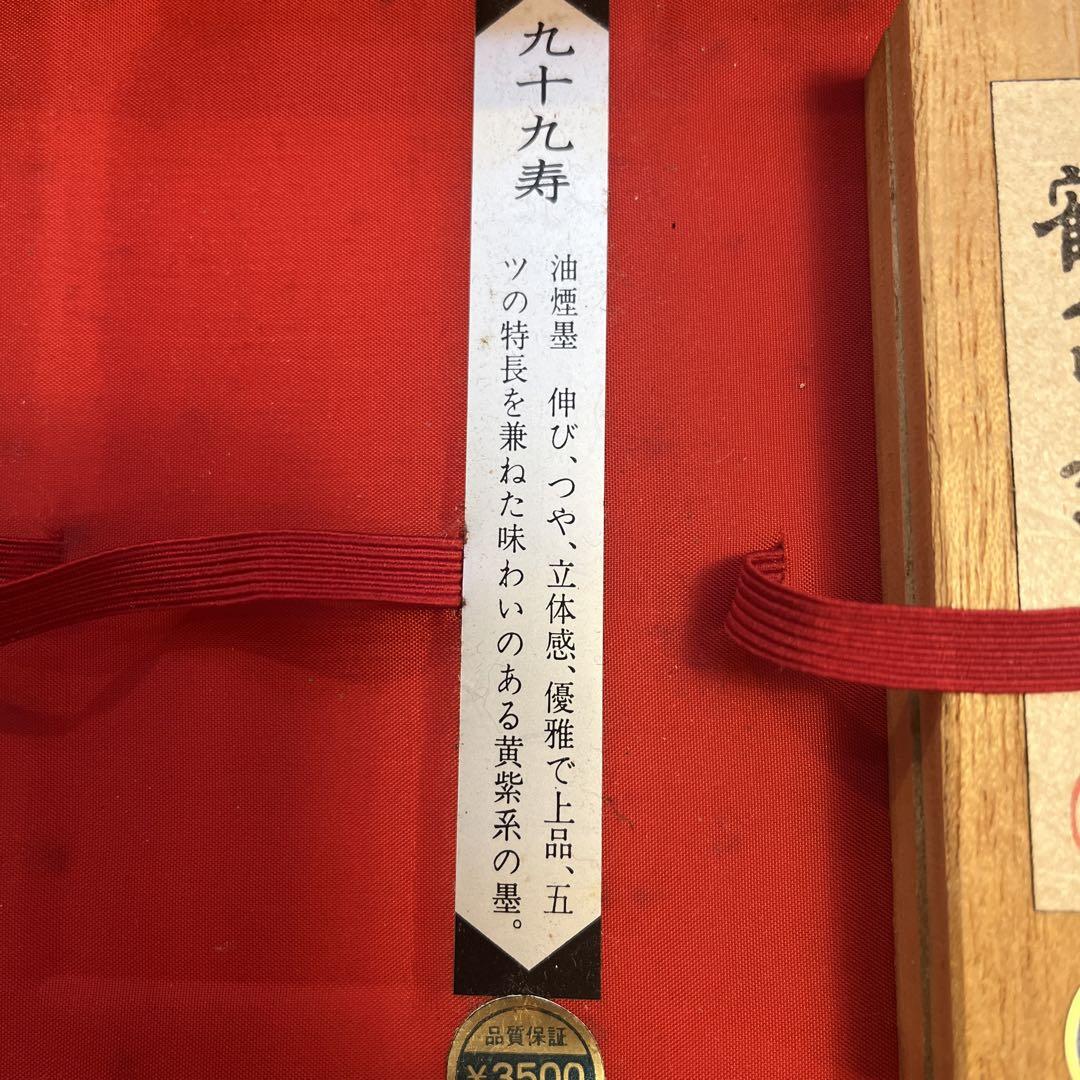 九十九寿
油煙墨　伸び、つや、立体感、優雅で上品、五
ツの特長を兼ねた味わいのある黄紫系の墨。
品質保証
¥3500